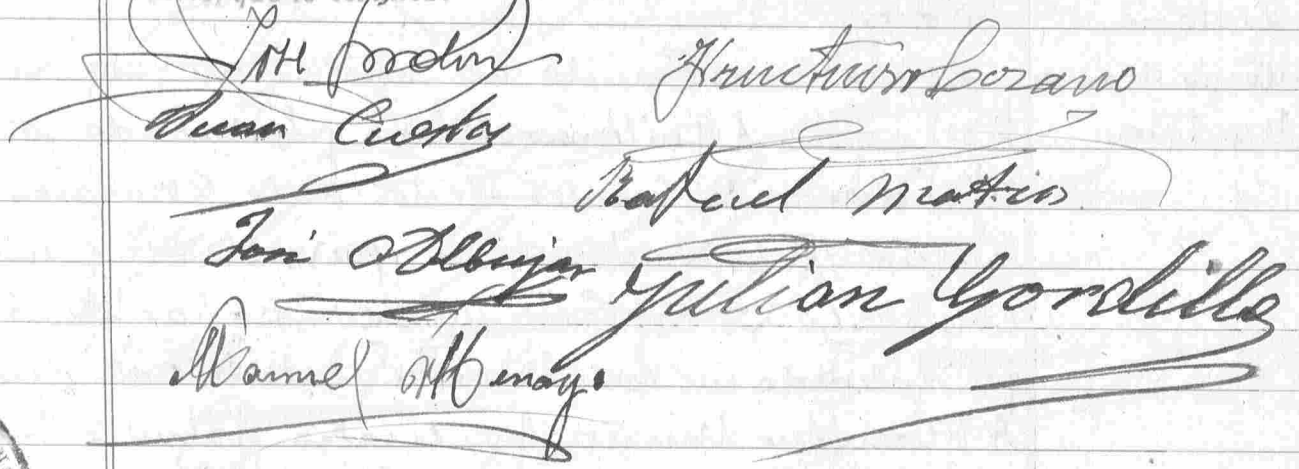 Fructuoso Lozano
Juan Cuestas
Rafael Matias
José Albujar
Julian Gordillo
Manuel Henay.